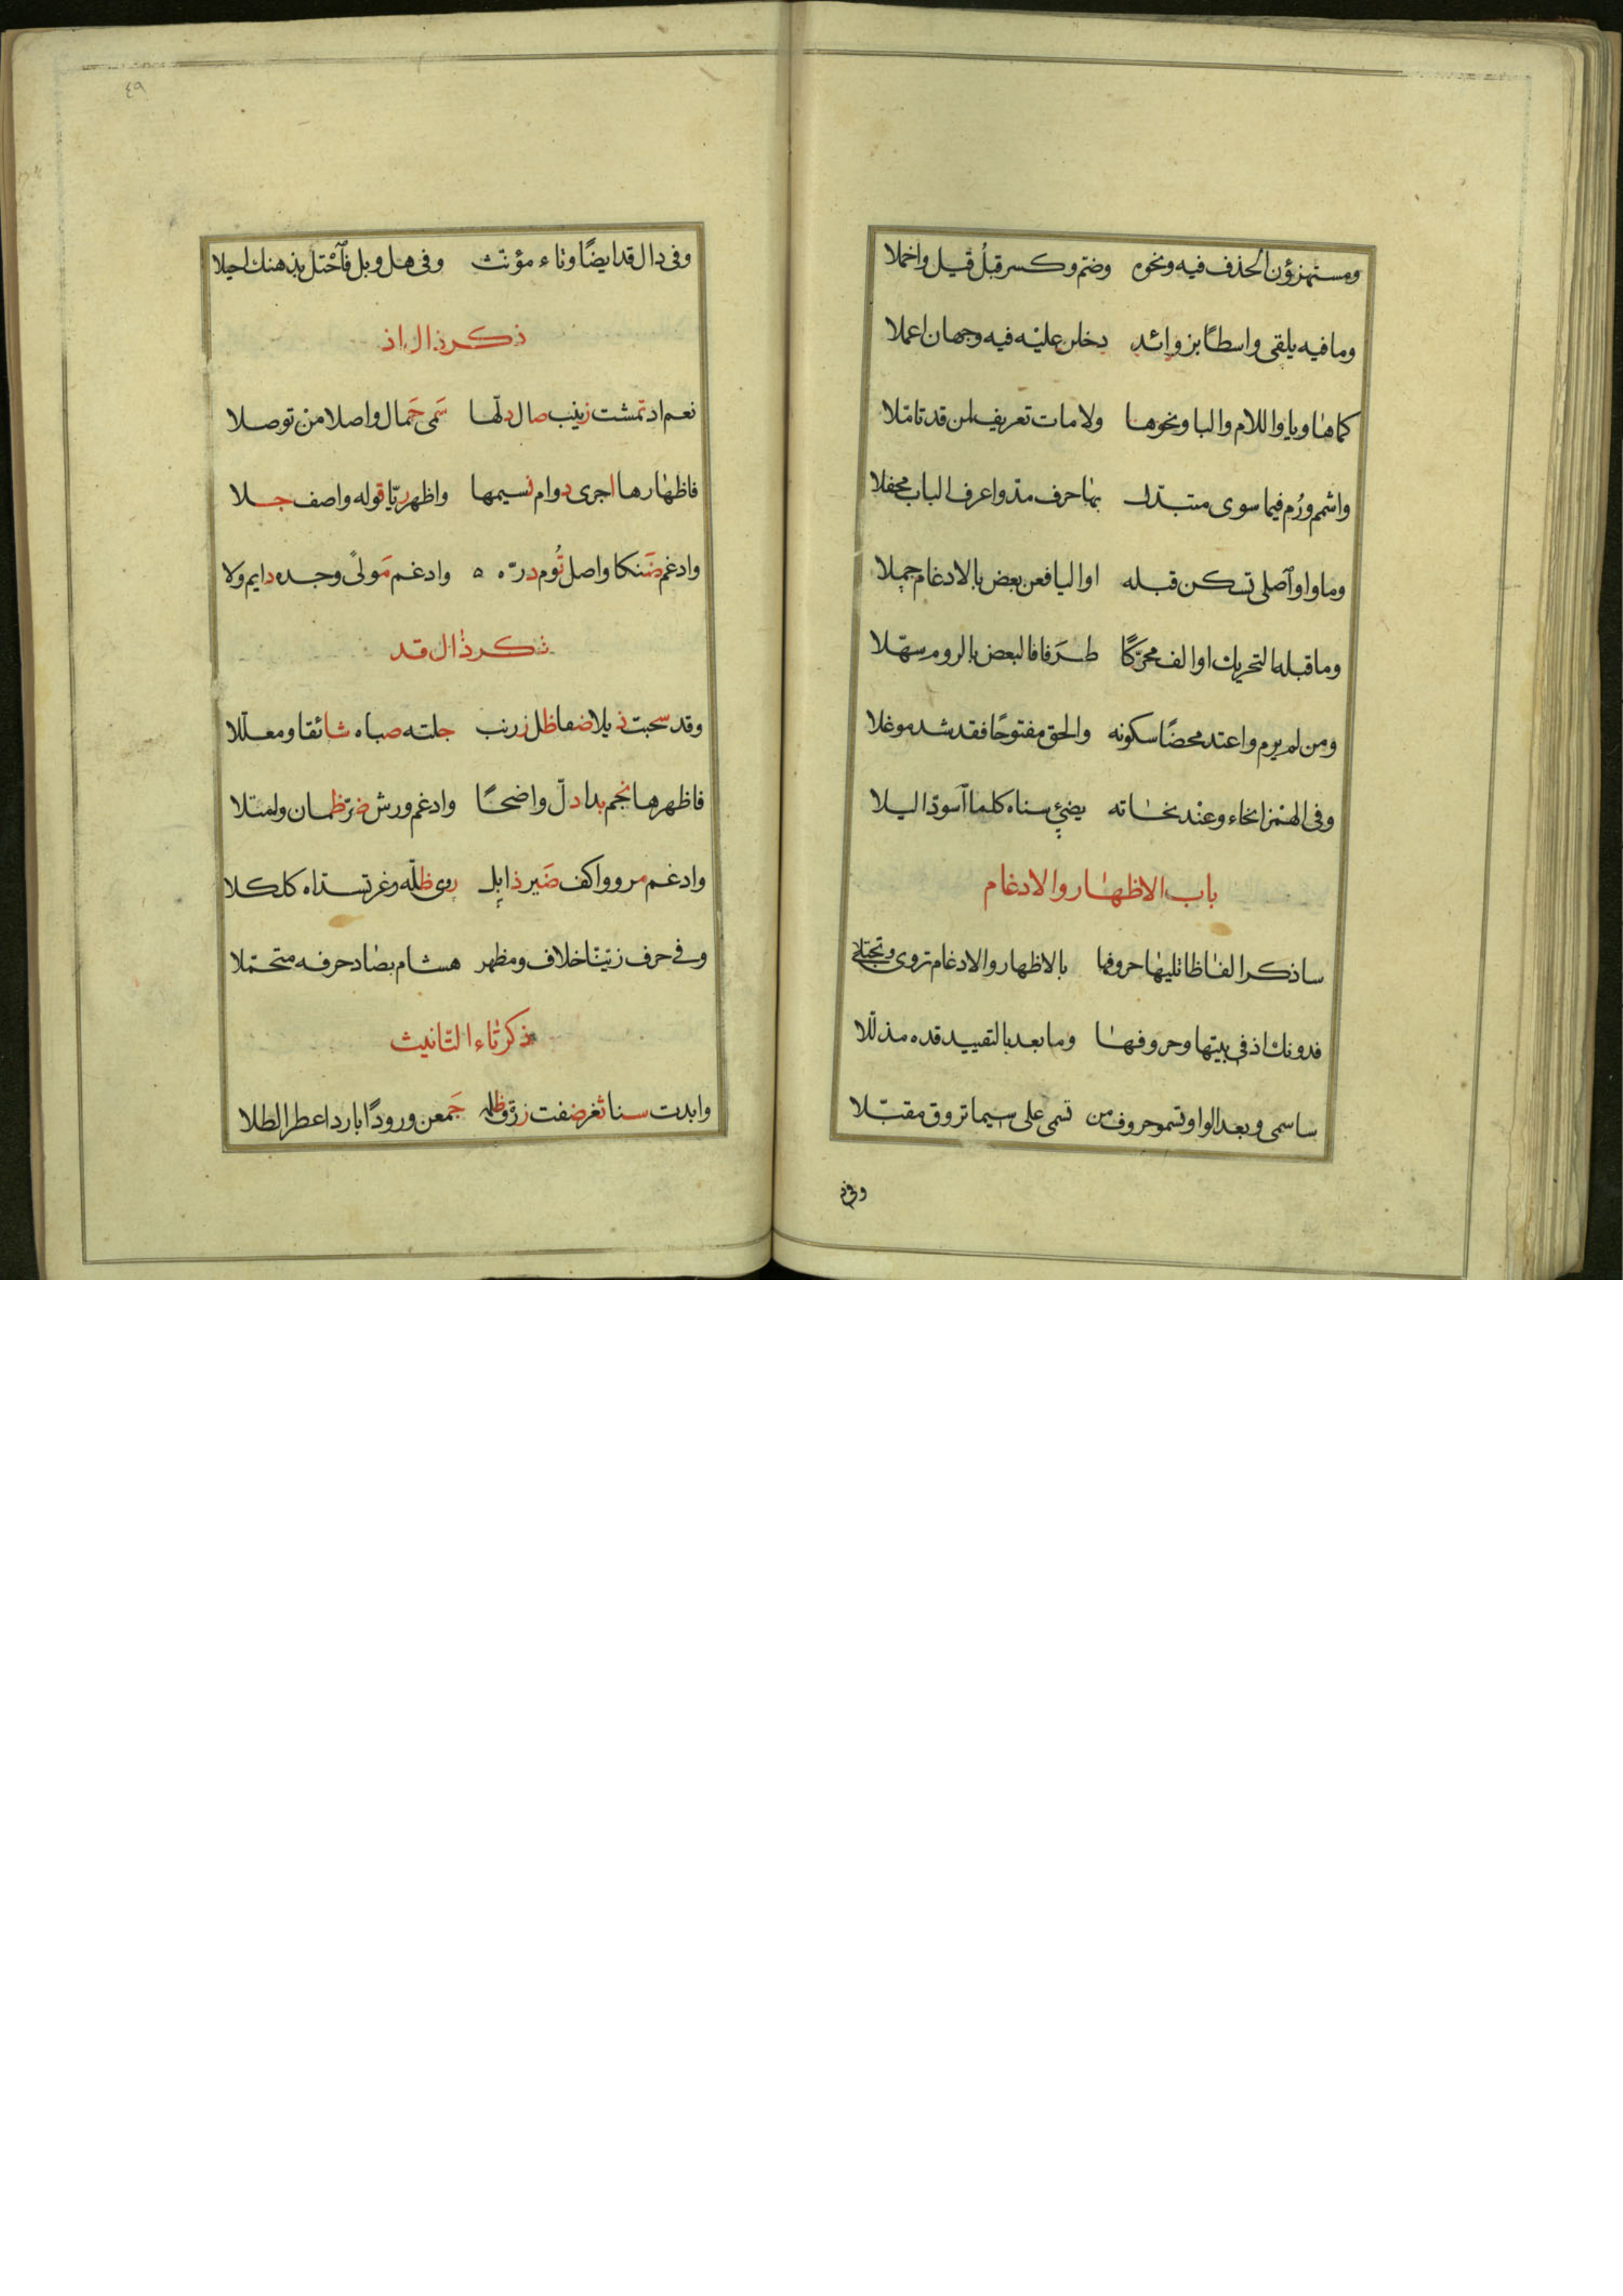 ومستهزؤن الحذف فيه ونحوه وضم وكسر قبل قيل واخملا
وما فيه يلقى واسطًا بزوائد دخلن عليه فيه وجهان اعملا
كما ها ويا واللام والبا ونحوها ولامات تعريف لمن قد تامّلا
واشمم ورُم فيما سوى متبدّل بها حرف مدّ واعرف الباب محفلا
وما واو اصلى تسكن قبله او اليا فعن بعض بالادغام حملا
وما قبله التحريك او الف محرّكًا طَرَفا فالبعض بالروم سهّلا
ومن لم يرم واعتد محضًا سكونه والحق مفتوحًا فقد شد موغلا
وفى الهمز انحاء وعند نحاته يضئ سناه كلما آسودّ اليلا
باب الاظهار والادغام
ساذكر الفاظا تليها حروفها بالاظهار والادغام تروى وتجتلى
فدونك اذ فى بيتها وحروفها وما بعد بالتقييد قده مذلّلا
ساسمى وبعد الواو تسمو حروف من تسمى على سيما تروق مقبّلا
وفى د
٤٩
وفى دال قد ايضًا وتاء مؤنّث وفى هل وبل فآحْتل بذهنك احيلا
ذكر ذال اذ
نعم اد تمشت زينب صال دلّها سَمى جَمال واصلا من توصلا
فاظهارها اجرى دوام نسيمها واظهر ريّا قوله واصف جلا
وادغم ضَنكا واصل تُوم درّه ه وادغم مَولىً وجده دايم ولا
ذكر ذال قد
وقد سحبت ذيلا ضفا ظل زرنب جلته صباه شائقا ومعلّلا
فاظهرها نجم بدا دلّ واضحًا وادغم ورش ضرّ ظمان وامتلا
وادغم مرو واكف ضَير ذابل زوى ظلّه وغر تسدّاه كلكلا
وفى حرف زيّنّا خلاف ومظهر هشام بصاد حرفه متحمّلا
ذكر تاء التانيث
وابدت سنا ثغر ضفت زرق ظله جَمعن ورودًا باردا عطر الطلا